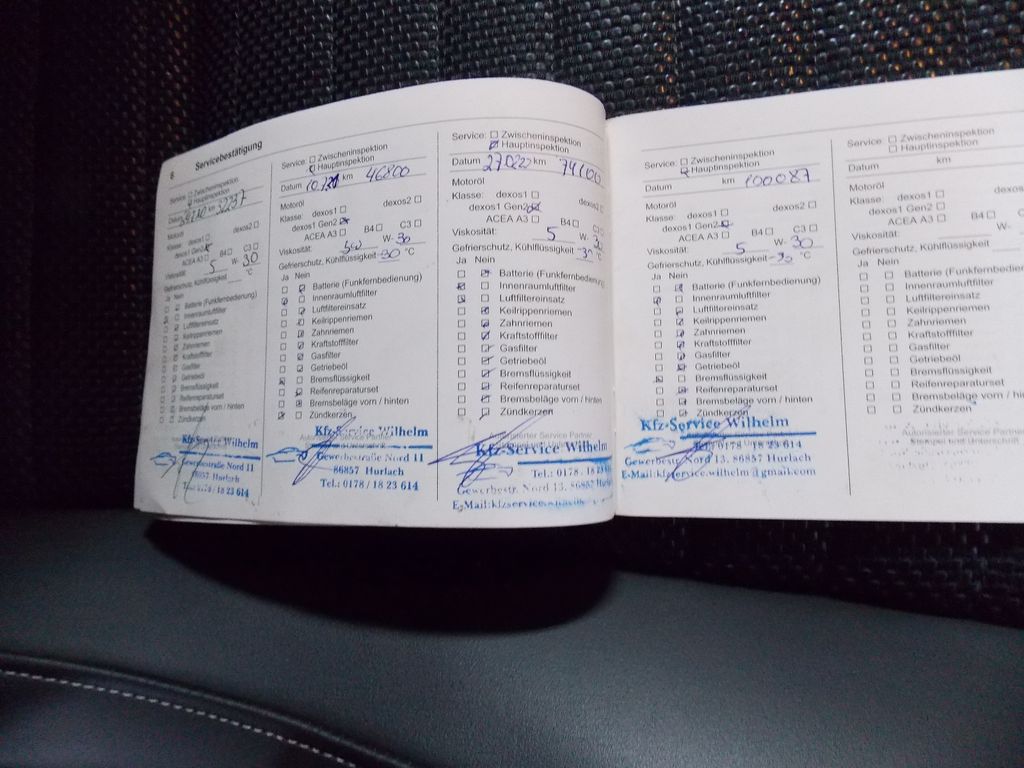 8 Servicebestätigung
Service: Zwischeninspektion
Hauptinspektion
Datum km 32237
Motoröl
Klasse: dexos1 dexos2
dexos1 Gen2
B4 C3
Viskosität: 5 W- 30
Gefrierschutz, Kühlflüssigkeit °C
Ja Nein
Batterie (Funkfernbedienung)
Innenraumluftfilter
Luftfiltereinsatz
Keilrippenriemen
Zahnriemen
Kraftstofffilter
Gasfilter
Getriebeöl
Bremsflüssigkeit
Reifenreparaturset
Bremsbeläge vorn / hinten
Zündkerzen
Kfz-Service Wilhelm
Gewerbestraße Nord 11
86857 Hurlach
Tel.: 0178 / 18 23 614
Service: Zwischeninspektion
Hauptinspektion
Datum km 46800
Motoröl
Klasse: dexos1 dexos2
dexos1 Gen2
ACEA A3 B4 C3
Viskosität: W- 30
Gefrierschutz, Kühlflüssigkeit -30 °C
Ja Nein
Batterie (Funkfernbedienung)
Innenraumluftfilter
Luftfiltereinsatz
Keilrippenriemen
Zahnriemen
Kraftstofffilter
Gasfilter
Getriebeöl
Bremsflüssigkeit
Reifenreparaturset
Bremsbeläge vorn / hinten
Zündkerzen
Kfz-Service Wilhelm
Gewerbestraße Nord 11
86857 Hurlach
Tel.: 0178 / 18 23 614
Service: Zwischeninspektion
Hauptinspektion
Datum 270222 km 74100
Motoröl
Klasse: dexos1 dexos2
dexos1 Gen2
ACEA A3 B4 C3
Viskosität: 5 W- 30
Gefrierschutz, Kühlflüssigkeit °C
Ja Nein
Batterie (Funkfernbedienung)
Innenraumluftfilter
Luftfiltereinsatz
Keilrippenriemen
Zahnriemen
Kraftstofffilter
Gasfilter
Getriebeöl
Bremsflüssigkeit
Reifenreparaturset
Bremsbeläge vorn / hinten
Zündkerzen
Autorisierter Service Partner
Kfz-Service Wilhelm
Tel.: 0178 / 18 23
Gewerbestr. Nord 13, 86857
E-Mail:kfzservice.
Service: Zwischeninspektion
Hauptinspektion
Datum km 100087
Motoröl
Klasse: dexos1 dexos2
dexos1 Gen2
ACEA A3 B4 C3
Viskosität: 5 W- 30
Gefrierschutz, Kühlflüssigkeit °C
Ja Nein
Batterie (Funkfernbedienung)
Innenraumluftfilter
Luftfiltereinsatz
Keilrippenriemen
Zahnriemen
Kraftstofffilter
Gasfilter
Getriebeöl
Bremsflüssigkeit
Reifenreparaturset
Bremsbeläge vorn / hinten
Zündkerzen
Kfz-Service Wilhelm
Tel.: 0178 / 18 23 614
Gewerbestr. Nord 13, 86857 Hurlach
E-Mail:kfzservice.wilhelm@gmail.com
Service: Zwischeninspektion
Hauptinspektion
Datum km
Motoröl
Klasse: dexos1
dexos1 Gen2
ACEA A3 B4
Viskosität: W-
Gefrierschutz, Kühlflüssigkeit
Ja Nein
Batterie (Funkfernbedienung)
Innenraumluftfilter
Luftfiltereinsatz
Keilrippenriemen
Zahnriemen
Kraftstofffilter
Gasfilter
Getriebeöl
Bremsflüssigkeit
Reifenreparaturset
Bremsbeläge vorn / hinten
Zündkerzen
Autorisierter Service Partner
Stempel und Unterschrift